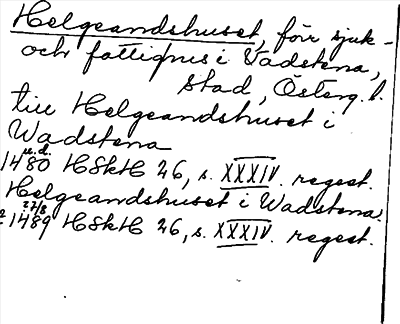 Helgeandshuset, förr sjuk-
och fattighus i Vadstena,
stad, Österg. l.
till Helgeandshuset i
Wadstena
u.d.
1480 HSkH 26, s. XXXIV. regest.
Helgeandshuset i Wadstena
27/8
1489 HSkH 26, s. XXXIV. regest.